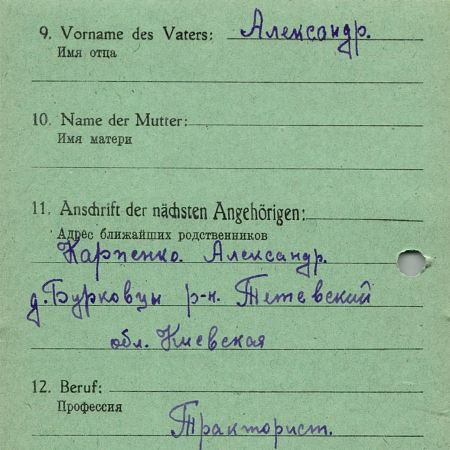 9. Vorname des Vaters: Александр.
Имя отца
10. Name der Mutter:
Имя матери
11. Anschrift der nächsten Angehörigen:
Адрес ближайших родственников
Карпенко. Александр.
д. Бурковцы р-н. Тетевский
обл. Киевская
12. Beruf:
Профессия
Тракторист.